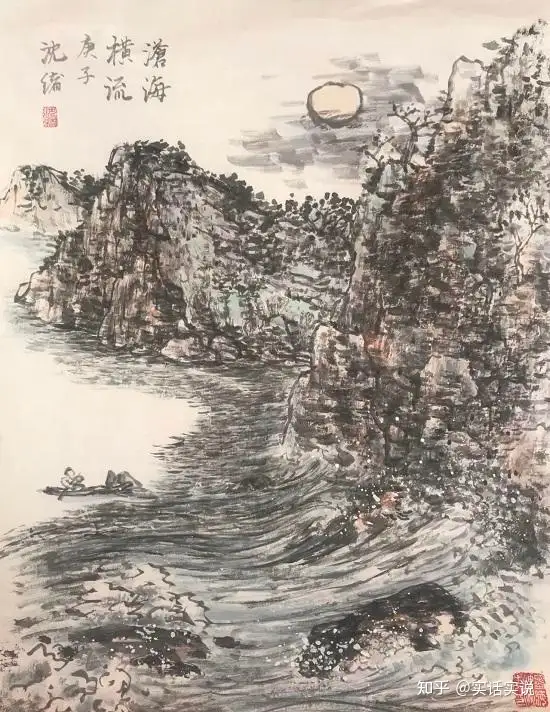 滄海
横流
庚子
沈緒
知乎 @实话实说